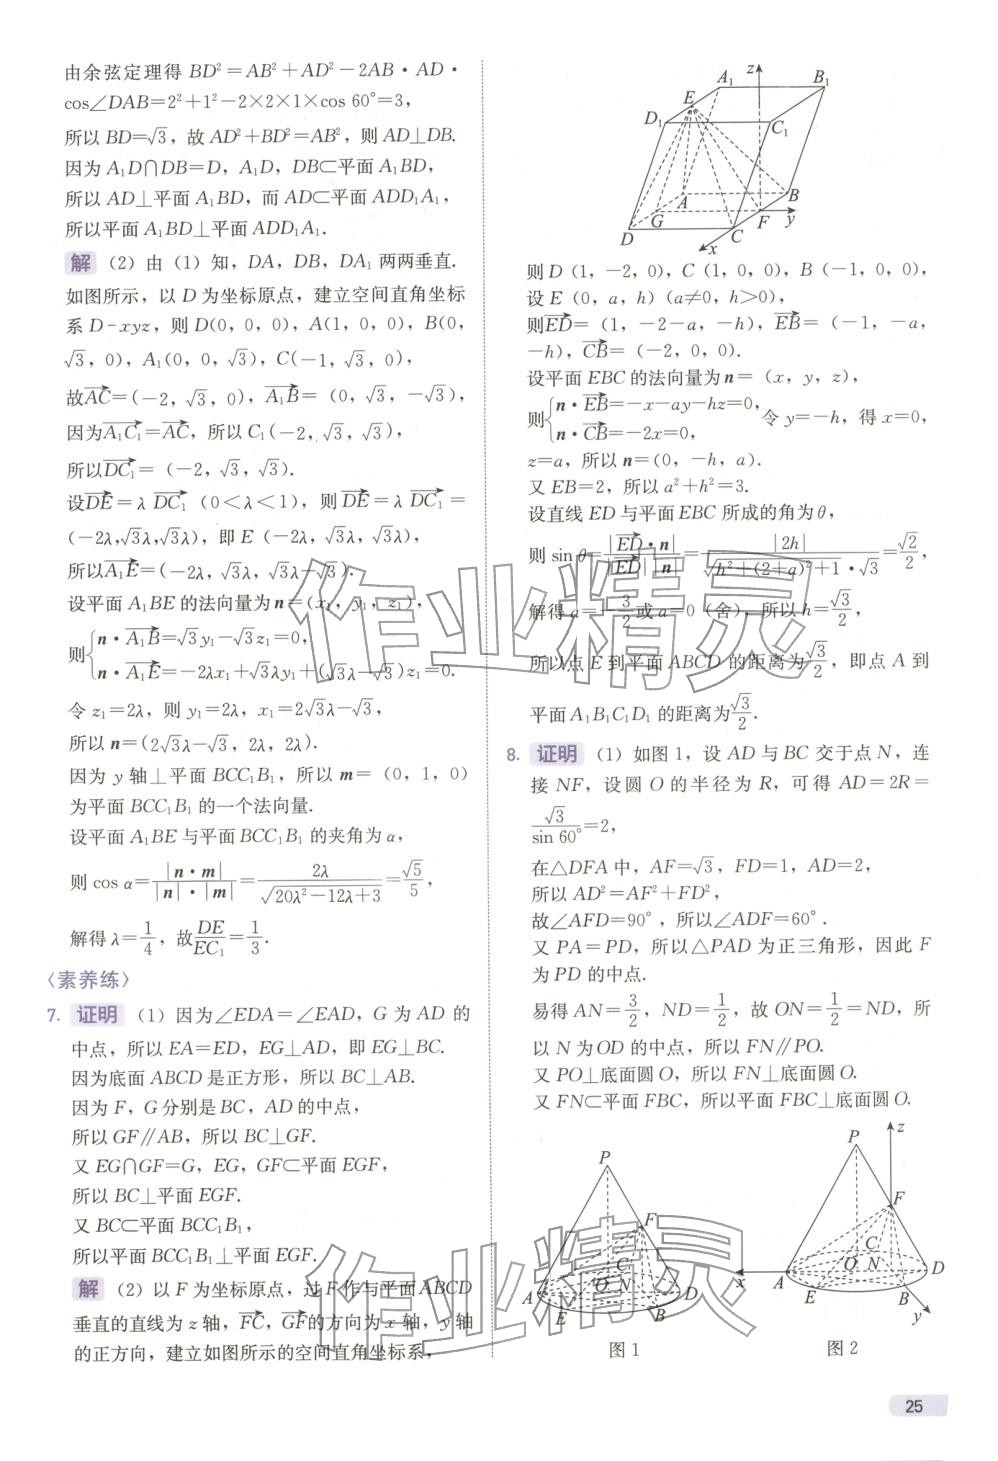 由余弦定理得 BD²=AB²+AD²-2AB·AD·
cos∠DAB=2²+1²-2×2×1×cos 60°=3,
所以 BD=√3, 故 AD²+BD²=AB², 则 AD⊥DB.
因为 A₁D∩DB=D, A₁D, DB⊂平面 A₁BD,
所以 AD⊥平面 A₁BD, 而 AD⊂平面 ADD₁A₁,
所以平面 A₁BD⊥平面 ADD₁A₁.
解 (2) 由 (1) 知, DA, DB, DA₁ 两两垂直.
如图所示, 以 D 为坐标原点, 建立空间直角坐标
系 D-xyz, 则 D(0, 0, 0), A(1, 0, 0), B(0,
√3, 0), A₁(0, 0, √3), C(-1, √3, 0),
故AC→=(-2, √3, 0), A₁B→=(0, √3, -√3),
因为A₁C₁→=AC→, 所以 C₁(-2, √3, √3),
所以DC₁→=(-2, √3, √3).
设DE→=λDC₁→ (0<λ<1), 则 DE→=λDC₁→=
(-2λ,√3λ,√3λ), 即 E (-2λ, √3λ, √3λ),
所以A₁E→=(-2λ, √3λ, √3λ-√3).
设平面 A₁BE 的法向量为 n=(x₁, y₁, z₁),
则{n·A₁B→=√3y₁-√3z₁=0,
n·A₁E→=-2λx₁+√3λy₁+(√3λ-√3)z₁=0.
令 z₁=2λ, 则 y₁=2λ, x₁=2√3λ-√3,
所以 n=(2√3λ-√3, 2λ, 2λ).
因为 y 轴⊥平面 BCC₁B₁, 所以 m=(0, 1, 0)
为平面 BCC₁B₁ 的一个法向量.
设平面 A₁BE 与平面 BCC₁B₁ 的夹角为 α,
则 cos α=|n·m|/(|n|·|m|)=2λ/√(20λ²-12λ+3)=√5/5,
解得 λ=1/4, 故DE/EC₁=1/3.
〈素养练〉
7. 证明 (1) 因为∠EDA=∠EAD, G 为 AD 的
中点, 所以 EA=ED, EG⊥AD, 即 EG⊥BC.
因为底面 ABCD 是正方形, 所以 BC⊥AB.
因为 F, G 分别是 BC, AD 的中点,
所以 GF∥AB, 所以 BC⊥GF.
又 EG∩GF=G, EG, GF⊂平面 EGF,
所以 BC⊥平面 EGF.
又 BC⊂平面 BCC₁B₁,
所以平面 BCC₁B₁⊥平面 EGF.
解 (2) 以 F 为坐标原点, 过 F 作与平面 ABCD
垂直的直线为 z 轴, FC→, GF→的方向为 x 轴, y 轴
的正方向, 建立如图所示的空间直角坐标系,
z
A₁
B₁
E
D₁
C₁
A
B
G
F
y
D
C
x
则 D (1, -2, 0), C (1, 0, 0), B (-1, 0, 0),
设 E (0, a, h) (a≠0, h>0),
则ED→=(1, -2-a, -h), EB→=(-1, -a,
-h), CB→=(-2, 0, 0).
设平面 EBC 的法向量为 n=(x, y, z),
则{n·EB→=-x-ay-hz=0, 令 y=-h, 得 x=0,
n·CB→=-2x=0,
z=a, 所以 n=(0, -h, a).
又 EB=2, 所以 a²+h²=3.
设直线 ED 与平面 EBC 所成的角为 θ,
则 sin θ=|ED→·n|/(|ED→||n|)=|2h|/(√(h²+(2+a)²+1)·√3)=√2/2,
解得 a=-3/2 或 a=0 (舍), 所以 h=√3/2,
所以点 E 到平面 ABCD 的距离为√3/2, 即点 A 到
平面 A₁B₁C₁D₁ 的距离为√3/2.
8. 证明 (1) 如图 1, 设 AD 与 BC 交于点 N, 连
接 NF, 设圆 O 的半径为 R, 可得 AD=2R=
√3/sin 60°=2,
在△DFA 中, AF=√3, FD=1, AD=2,
所以 AD²=AF²+FD²,
故∠AFD=90°, 所以∠ADF=60°.
又 PA=PD, 所以△PAD 为正三角形, 因此 F
为 PD 的中点.
易得 AN=3/2, ND=1/2, 故 ON=1/2=ND, 所
以 N 为 OD 的中点, 所以 FN∥PO.
又 PO⊥底面圆 O, 所以 FN⊥底面圆 O.
又 FN⊂平面 FBC, 所以平面 FBC⊥底面圆 O.
P
F
C
O
N
A
D
E
B
图 1
z
P
F
C
O
N
D
x
A
E
B
y
图 2
25
作业精灵
作业精灵